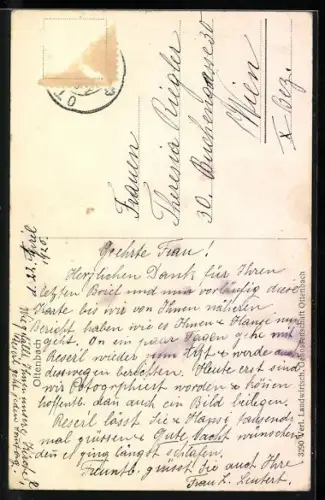 Frauen
Theresia Riegler
30. Buchengasse 30
Wien
X Bez.
d. 22. April
1925.
Geehrte Frau!
Herzlichen Dank für Ihren
letzten Brief und nur vorläufig diese
Karte bis wir von Ihnen näheren
Bericht haben wie es Ihnen & Hansi nur
geht. On ein paar Tagen gehe mit
Reserl wieder zum Arzt & werde auch
deswegen berichten. Heute erst sind
wir Fotographiert worden & können
hoffentl. dan auch ein Bild beilegen.
Reserl lässt Sie & Hansi tausends
mal grüssen & Gute Nacht wünschen
den es ging längst schlafen.
Freuntl. grüsst Sie auch Ihre
Frau L. Leutert.
Ottenbach
3290 Verl. Landwirtsch. Genossenschaft Ottenbach